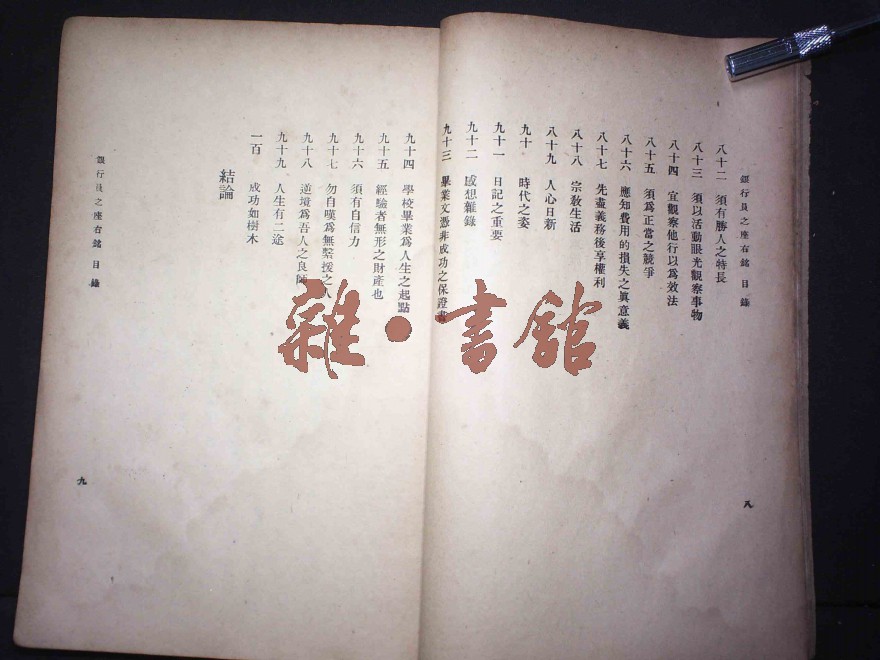 銀行員之座右銘 目錄
八十二 須有勝人之特長
八十三 須以活動眼光觀察事物
八十四 宜觀察他行以爲效法
八十五 須爲正當之競爭
八十六 應知費用的損失之眞意義
八十七 先盡義務後享權利
八十八 宗敎生活
八十九 人心日新
九十 時代之姿
九十一 日記之重要
九十二 感想雜錄
八
九十三 畢業文憑非成功之保證書
九十四 學校畢業爲人生之起點
九十五 經驗者無形之財產也
九十六 須有自信力
九十七 勿自嘆爲無繄援之人
九十八 逆境爲吾人之良師
九十九 人生有二途
一百 成功如樹木
結論
銀行員之座右銘 目錄
九
雜·書館